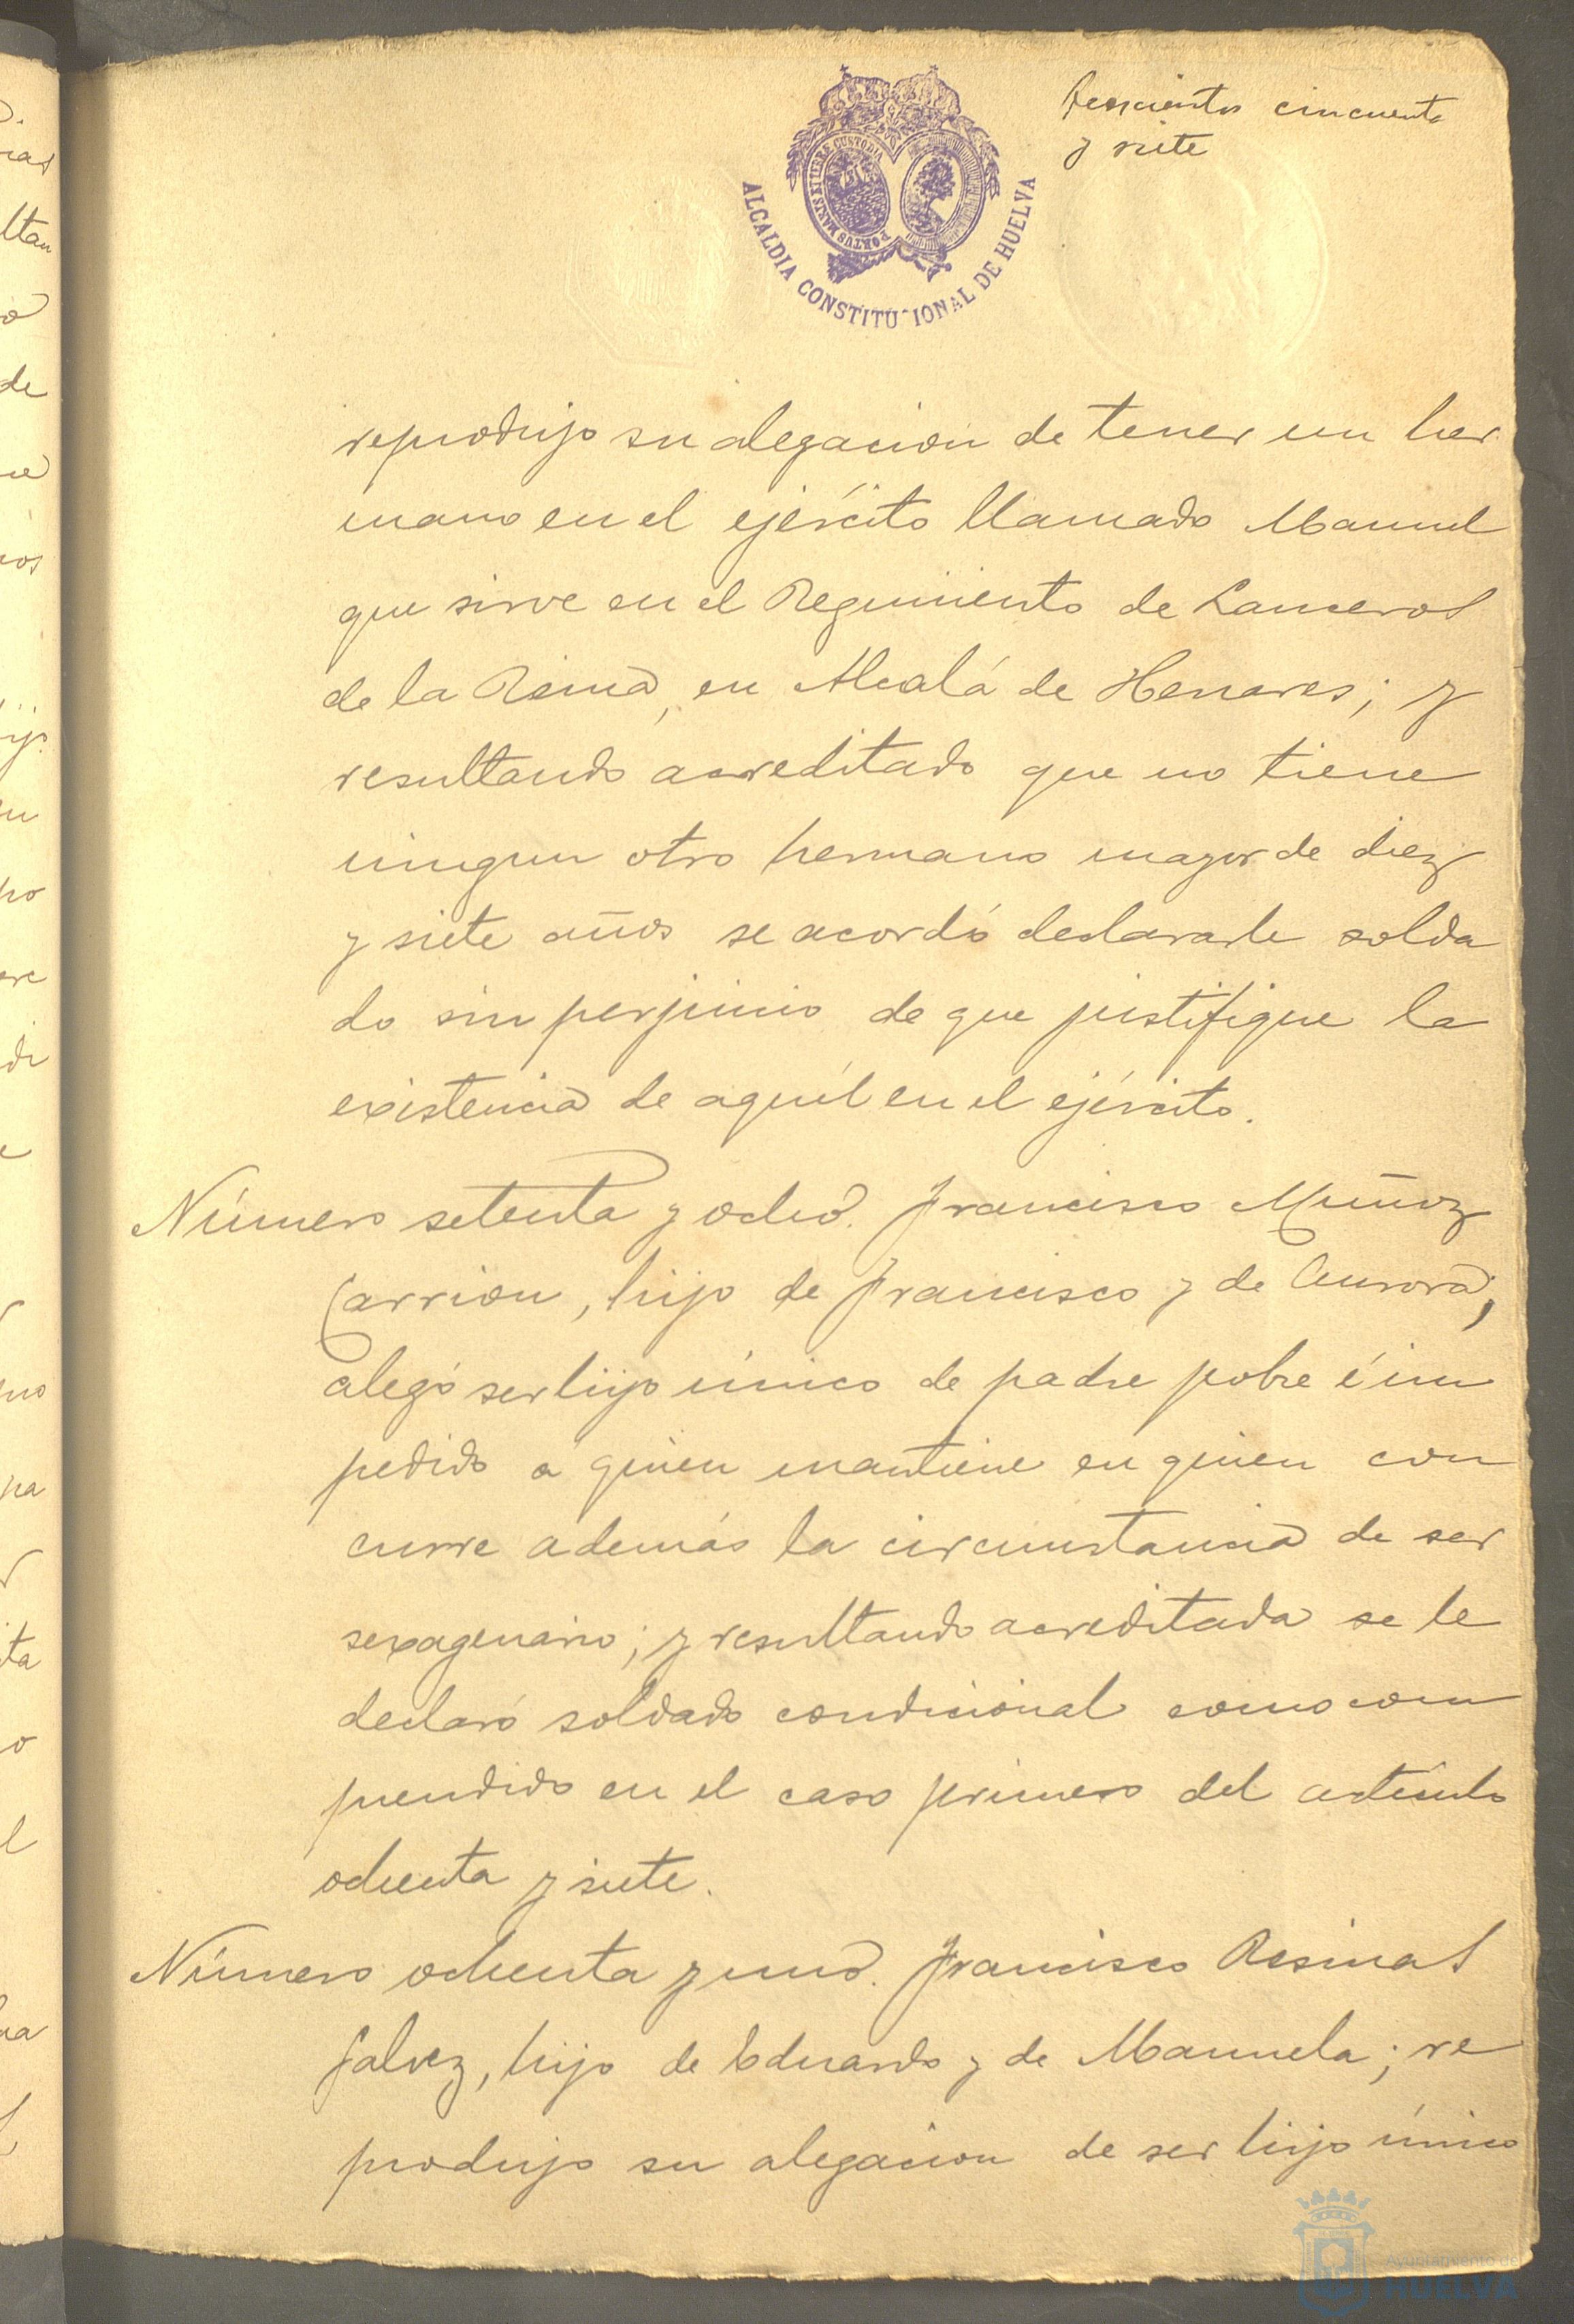 cincuenta
y siete
PORTUS MARIS ET TERRE CUSTODIA
ALCALDIA CONSTITUCIONAL DE HUELVA
reprodujo su alegacion de tener un her
mano en el ejército llamado Manuel
que sirve en el Regimiento de Lanceros
de la Reina, en Alcalá de Henares; y
resultando acreditado que no tiene
ningun otro hermano mayor de diez
y siete años se acordó declararle solda
do sin perjuicio de que justifique la
existencia de aquél en el ejército.
Número setenta y ocho. Francisco Muñoz
Carrion, hijo de Francisco y de Aurora;
alegó ser hijo único de padre pobre é im
pedido a quien mantiene en quien con
curre además la circunstancia de ser
sexagenario; y resultando acreditada se le
declaró soldado condicional como com
prendido en el caso primero del artículo
ochenta y siete.
Número ochenta y uno. Francisco Resinas
Galvez, hijo de Eduardo y de Manuela; re
produjo su alegacion de ser hijo único
Ayuntamiento de
HUELVA